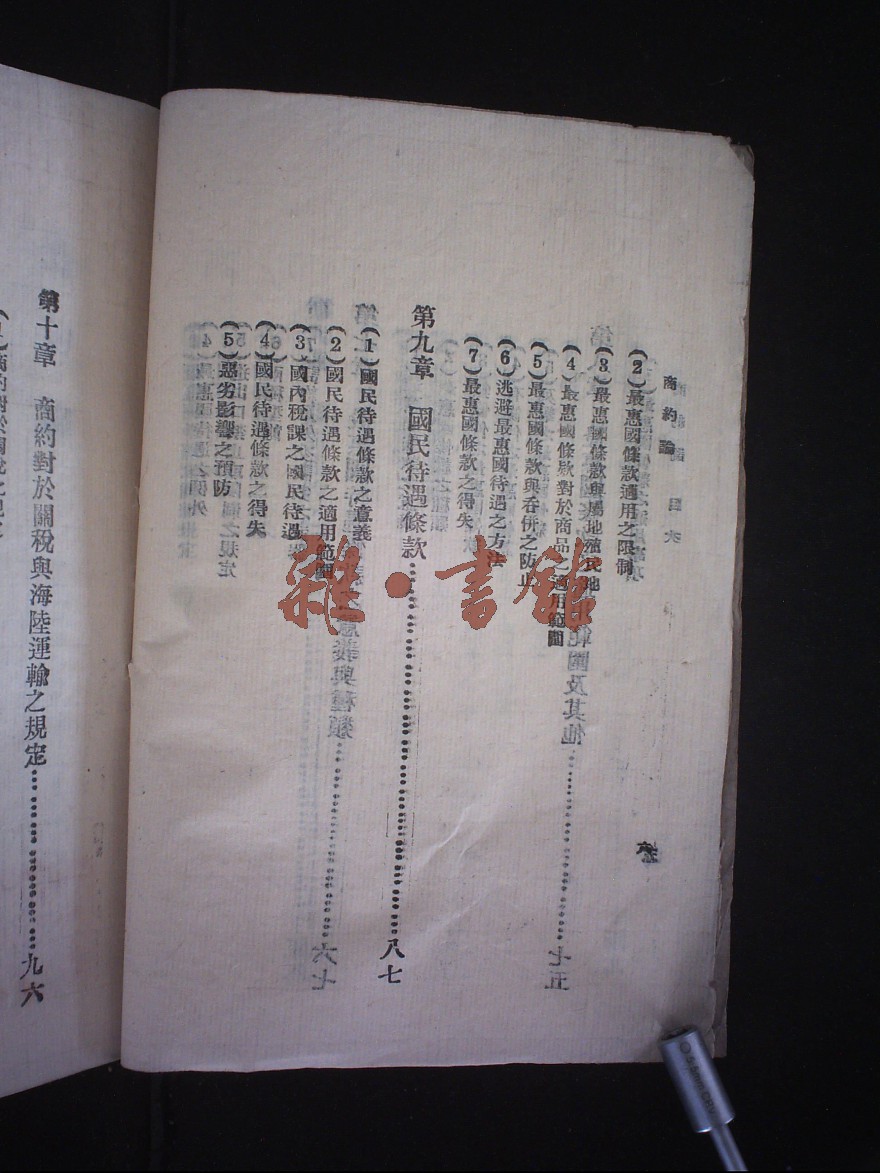 商約論 目次
(2)最惠國條款適用之限制
(3)最惠國條款與屬地殖民地
(4)最惠國條款對於商品之適用範圍
(5)最惠國條款與吞併之防止
(6)逃避最惠國待遇之方法
(7)最惠國條款之得失
第九章 國民待遇條款……八七
(1)國民待遇條款之意義
(2)國民待遇條款之適用範圍
(3)國內稅課之國民待遇
(4)國民待遇條款之得失
(5)惡劣影響之預防
六
第十章 商約對於關稅與海陸運輸之規定……九六
雜·書館